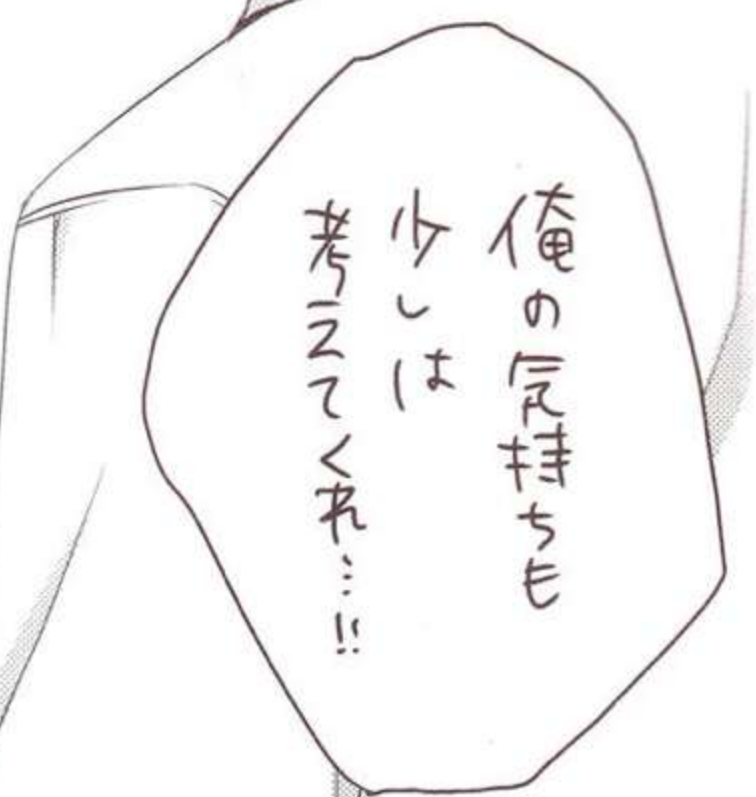 俺の気持ちも
少しは
考えてくれ…!!